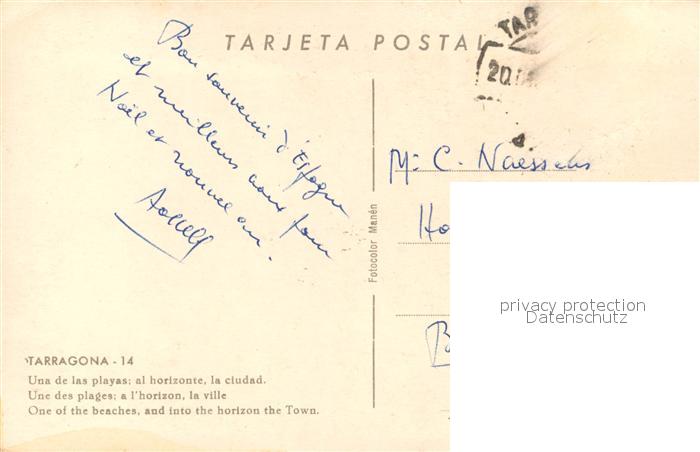 TARJETA POSTAL
TAR
20.
Bon souvenir d'Espagne
et meilleurs vœux pour
Noël et nouvel an.
M: C. Naessens
Ho
B
Fotocolor Manén
privacy protection
Datenschutz
TARRAGONA - 14
Una de las playas; al horizonte, la ciudad.
Une des plages; a l'horizon, la ville
One of the beaches, and into the horizon the Town.